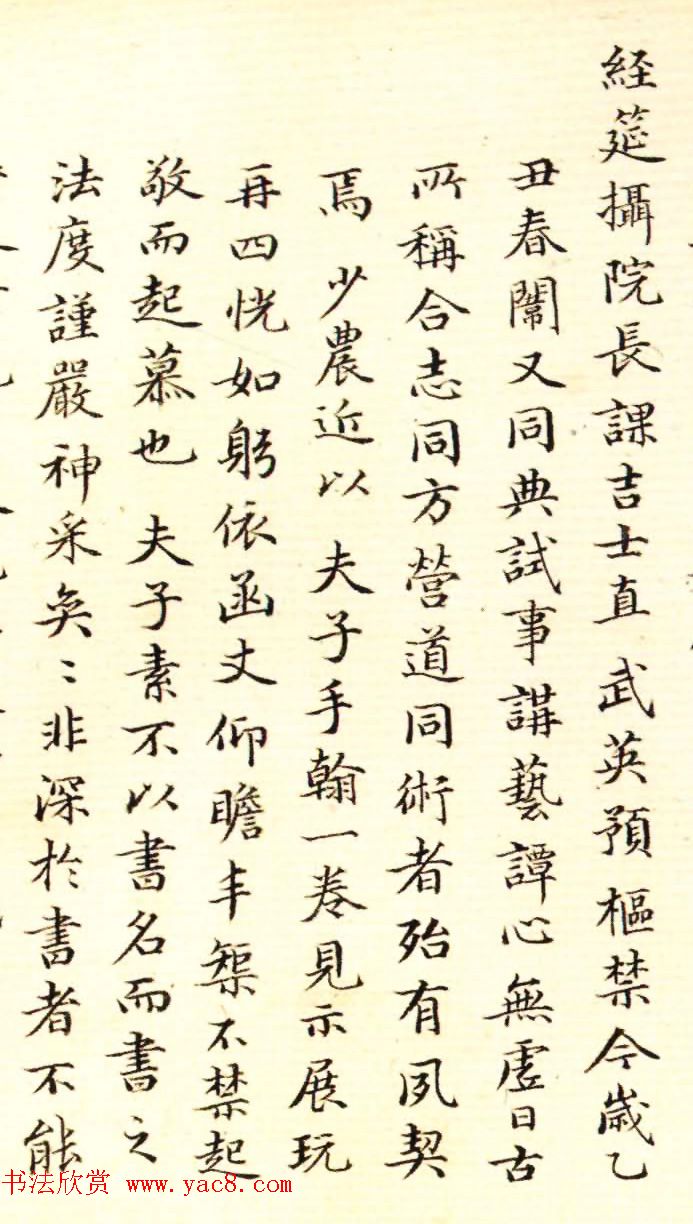 經筵攝院長課吉士直 武英預樞禁今歲乙
丑春闈又同典試事講藝譚心無虛日古
所稱合志同方營道同術者殆有夙契
焉 少農近以 夫子手翰一卷見示展玩
再四恍如躬依函丈仰瞻丰榘不禁起
敬而起慕也 夫子素不以書名而書之
法度謹嚴神采奐〻非深於書者不能
书法欣赏 www.yac8.com